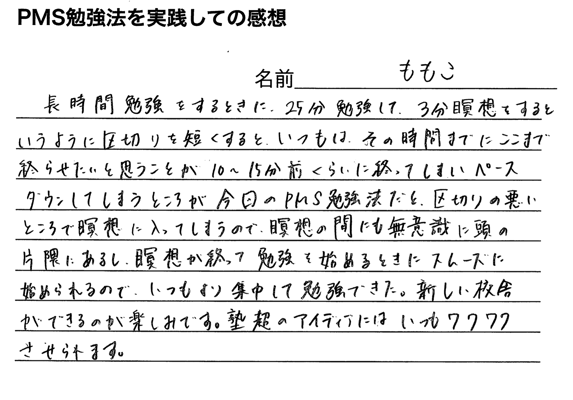 PMS勉強法を実践しての感想
名前 ももこ
長時間勉強をするときに、25分勉強して、3分瞑想をすると
いうように区切りを短くすると、いつもは、その時間までにここまで
終らせたいと思うことが10〜15分前くらいに終ってしまいペース
ダウンしてしまうところが今日のPMS勉強法だと、区切りの悪い
ところで瞑想に入ってしまうので、瞑想の間にも無意識に頭の
片隅にあるし、瞑想が終って勉強を始めるときにスムーズに
始められるので、いつもより集中して勉強できた。新しい校舎
ができるのが楽しみです。塾超のアイディアにはいつもワクワク
させられます。